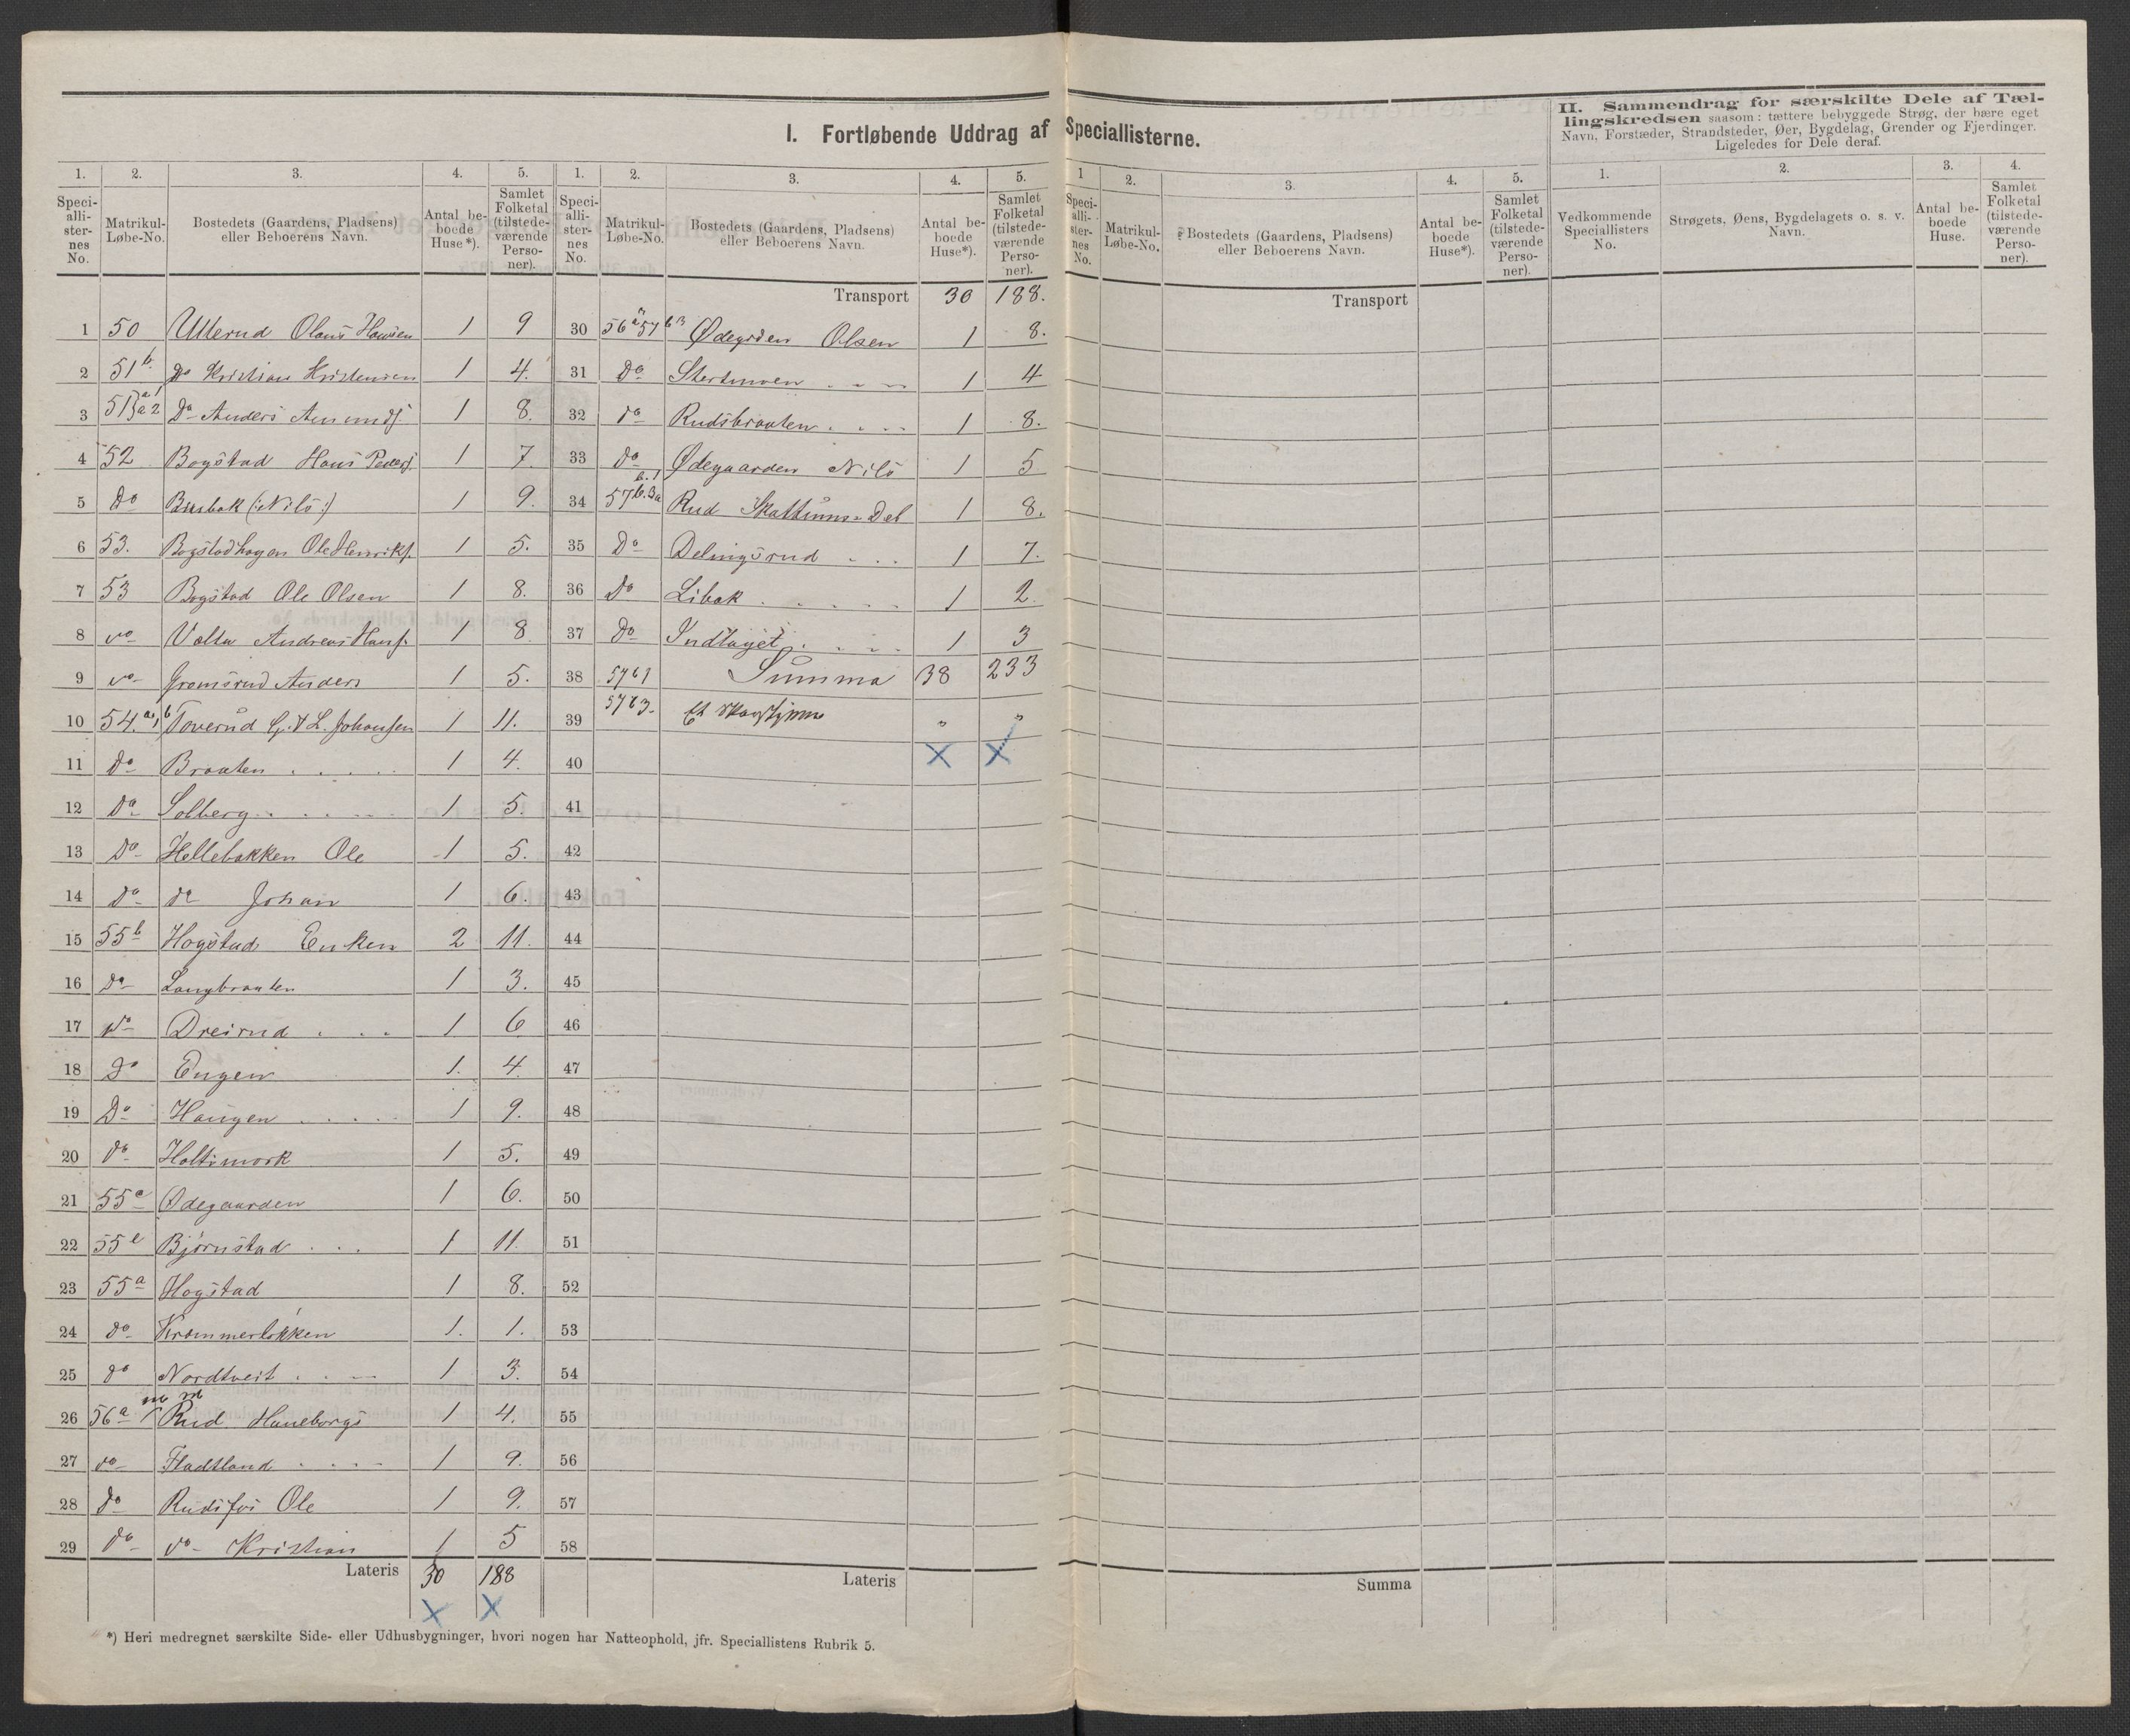 I. Fortløbende Uddrag af Speciallisterne.
1. 2. 3. 4. 5.
Speciallisternes No. Matrikul-Løbe-No. Bostedets (Gaardens, Pladsens) eller Beboerens Navn. Antal beboede Huse*). Samlet Folketal (tilstedeværende Personer).
1 50 Ullerud Olaus Hansen 1 9
2 51 b. Do Kristian Kristensen 1 4.
3 51 a1 a2 Do Anders Amundsf. 1 8.
4 52 Bogstad Hans Pedersf. 1 7.
5 Do (: Nils :) 1 9.
6 53. Bogstadhagen Ole Henriksf. 1 5.
7 53 Bogstad Ole Olsen 1 8.
8 do Volta Andreas Hansf. 1 8
9 do Gromsrud Anders 1 5.
10 54 a, b Toverud G. & L. Johansen 1 11.
11 do Braaten . . . . . 1 4.
12 do Solberg . . . . 1 5.
13 do Hellebakken Ole 1 5.
14 do do Johan 1 6.
15 55 b Hogstad Enken 2 11.
16 do Langbraaten 1 3.
17 do Dreirud . . . 1 6
18 do Engen 1. 4.
19 Do Haugen . . . . 1 9.
20 do Holtsmork 1 5.
21 55 a Ødegaarden 1 6.
22 55 Bjørnstad . . . 1 11.
23 55 a Hogstad 1 8.
24 do Krommerløkken 1. 1.
25 do Nordtveit . . . . 1 3.
26 56 a Rud Haneborgs 1 4.
27 do Fladtland . . . . 1 9.
28 do Rudsfos Ole 1 9.
29 do do Kristian 1 5
Lateris 30 188
X X
*) Heri medregnet særskilte Side- eller Udhusbygninger, hvori nogen har Natteophold, jfr. Speciallistens Rubrik 5.
1. 2. 3. 4. 5.
Speciallisternes No. Matrikul-Løbe-No. Bostedets (Gaardens, Pladsens) eller Beboerens Navn. Antal beboede Huse*). Samlet Folketal (tilstedeværende Personer).
Transport 30 188.
30 56 57 Ødegrden Olsen 1 8.
31 do 1 4
32 do Rudsbraaten . . . . 1 8.
33 do Ødegaarden Nils 1 5
34 57 b.1 b.3a Rud Skattums Del 1 8.
35 Do Delingsrud . . . 1 7.
36 Do Libak . . . . . 1 2.
37 do Indlaget . . . . 1 3
38 57 b1 Summa 38 233
39 57 b3. Et " "
X X
40
41
42
43
44
45
46
47
48
49
50
51
52
53
54
55
56
57
58
Lateris
1 2. 3. 4. 5.
Speciallisternes No. Matrikul-Løbe-No. Bostedets (Gaardens, Pladsens) eller Beboerens Navn. Antal beboede Huse*). Samlet Folketal (tilstedeværende Personer).
Transport
Summa
II. Sammendrag for særskilte Dele af Tæl-
lingskredsen saasom: tættere bebyggede Strøg, der bære eget
Navn, Forstæder, Strandsteder, Øer, Bygdelag, Grender og Fjerdinger.
Ligeledes for Dele deraf.
1. 2. 3. 4.
Vedkommende Speciallisters No. Strøgets, Øens, Bygdelagets o. s. v. Navn. Antal beboede Huse. Samlet Folketal (tilstedeværende Personer).